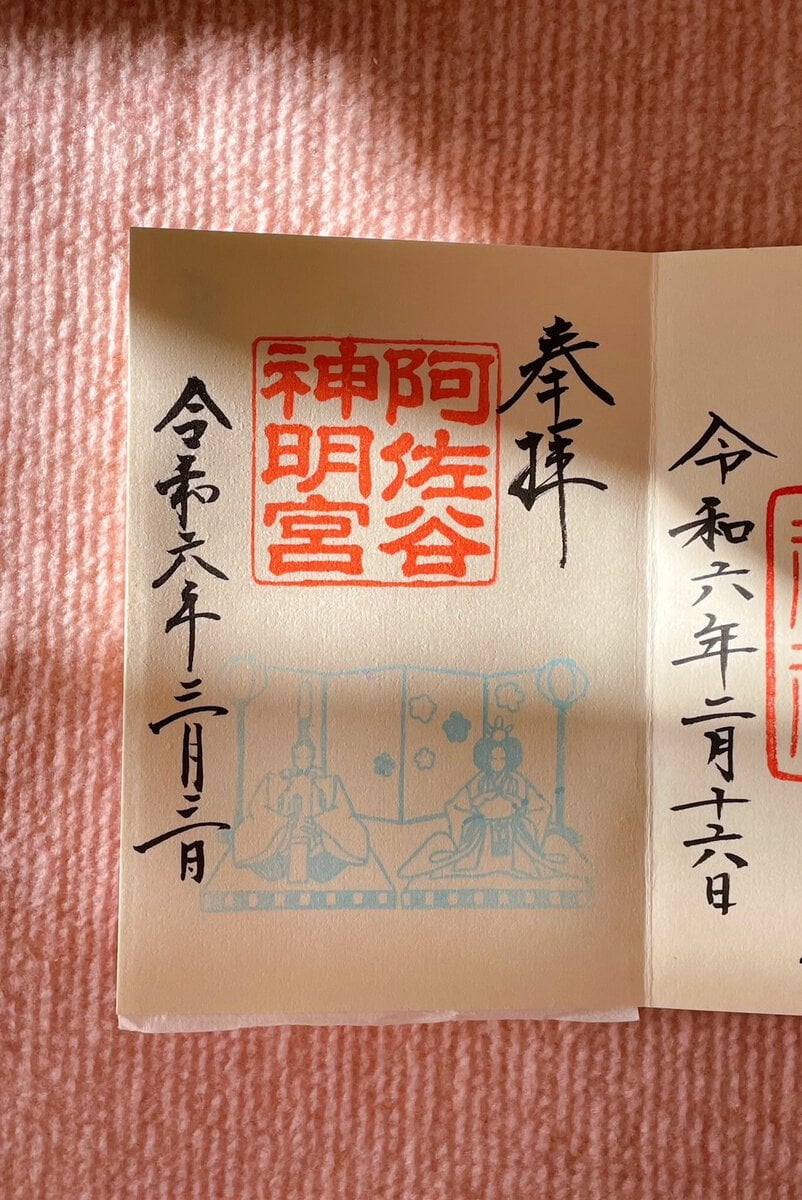 奉拝
阿佐谷
神明宮
令和六年三月三日
令和六年二月十六日